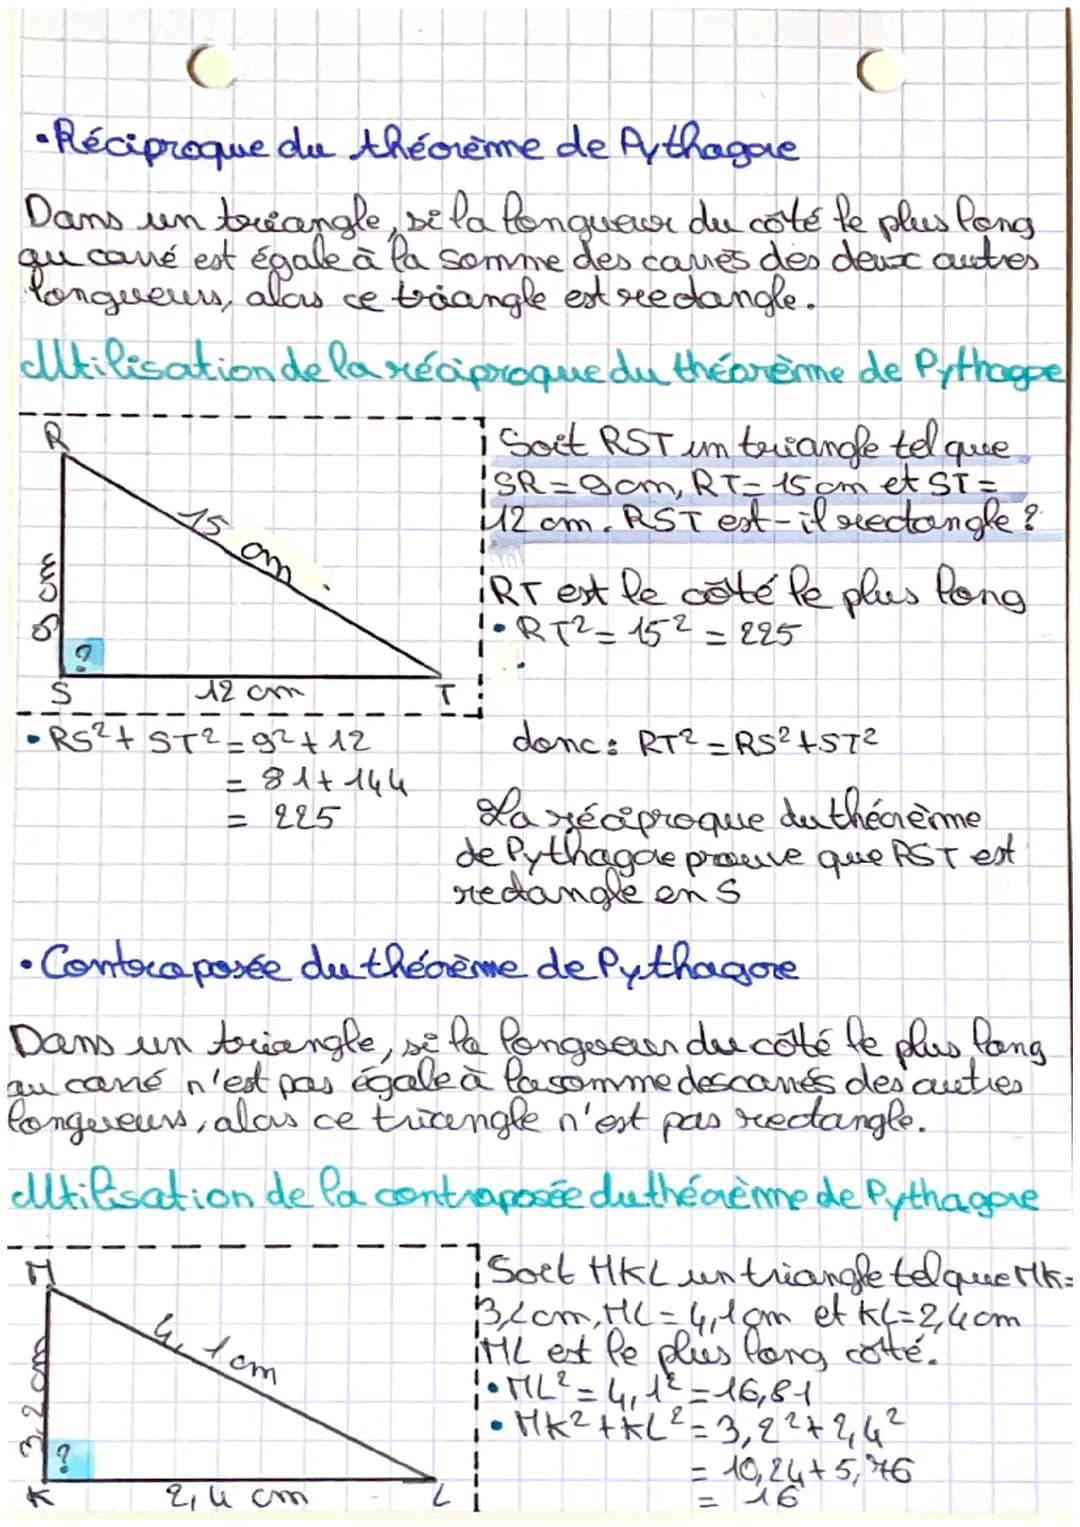 • Réciproque du théorème de Pythagore
Dans un triangle, si la longueur du côté le plus long
au carré est égale à la somme des carrés des deux autres
longueurs, alors ce triangle est rectangle.
Utilisation de la réciproque du théorème de Pythagore
R
15 cm
9 cm
?
S
12 cm
T
Soit RST un triangle tel que
SR = 9cm, RT = 15 cm et ST =
12 cm. RST est-il rectangle ?
RT est le côté le plus long
• RT² = 15² = 225
• RS² + ST² = 9² + 12
= 81 + 144
= 225
donc : RT² = RS² + ST²
La réciproque du théorème
de Pythagore prouve que RST est
rectangle en S
• Contraposée du théorème de Pythagore
Dans un triangle, si la longueur du côté le plus long
au carré n'est pas égale à la somme des carrés des autres
longueurs, alors ce triangle n'est pas rectangle.
Utilisation de la contraposée du théorème de Pythagore
M
4,1 cm
3,2 cm
?
K
2,4 cm
L
Soit MKL un triangle tel que MK =
3,2 cm, ML = 4,1 cm et KL = 2,4 cm
ML est le plus long côté.
• ML² = 4,1² = 16,81
• MK² + KL² = 3,2² + 2,4²
= 10,24 + 5,76
= 16